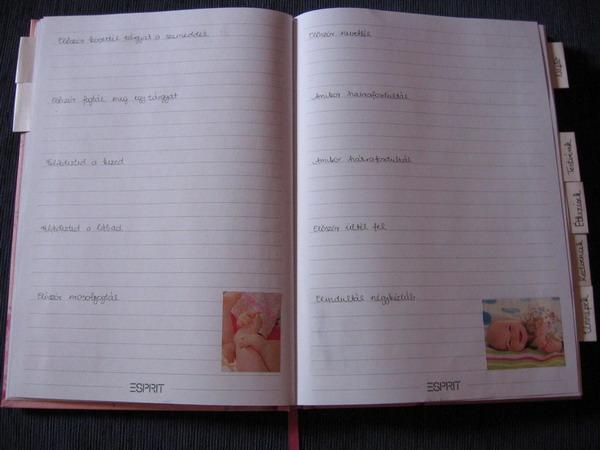 Először követtél tárgyat a szemeddel
Először fogtál meg egy tárgyat
Felfedezted a kezed
Felfedezted a lábad
Először mosolyogtál
ESPRIT
Először nevettél
Amikor hasrafordultál
Amikor hátrafordultál
Először ültél fel
Elindultál négykézláb
ESPRIT
Testvérek
Étkezések
Kedvencek
Ünnepek